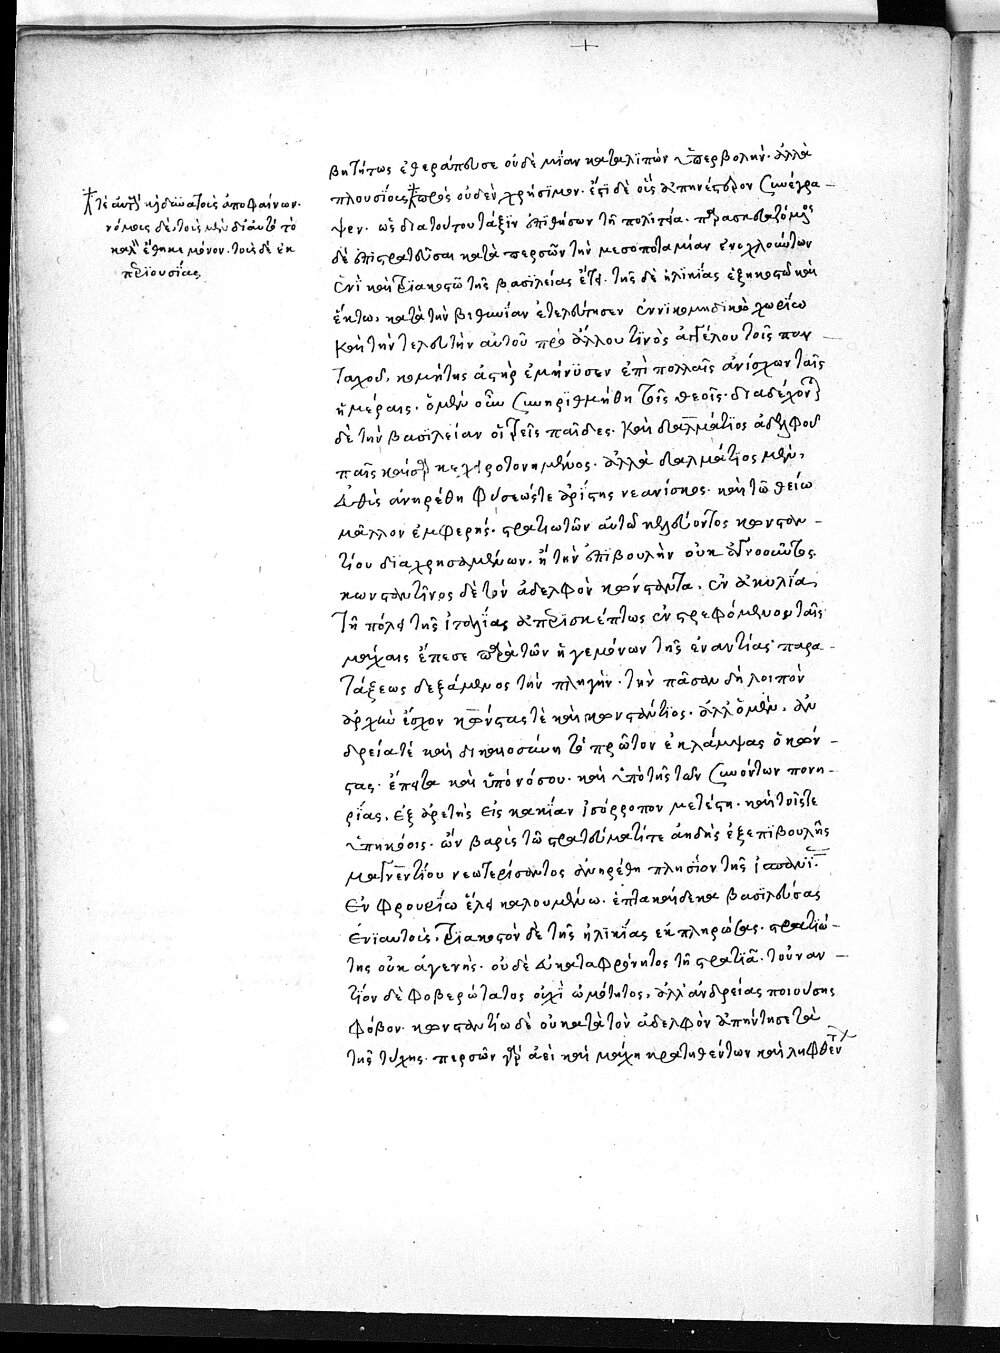 +
βητήτως ἐθεράπευσε οὐδὲ μίαν καταλιπὼν ὑπερβολήν. ἀλλὰ
πλουσίοις πρὸς οὐδὲν χρήσιμον. ἔτι δὲ οἷς ἀπηνέστερον συνέγρα-
ψεν. ὡς διατούτου τάξιν ἐπιθήσων τῆ πολιτεία. παρασκευαζόμενος
δὲ ἐπιστρατεῦσαι κατὰ περσῶν τὴν μεσοποταμίαν ἐνοχλούντων
ἑνὶ καὶ τριακοστῶ τῆς βασιλείας ἔτει. τῆς δὲ ἡλικίας ἑξηκοστῶ καὶ
ἕκτω, κατὰ τὴν βιθυνίαν ἐτελεύτησεν ἐν νικομηδικῶ χωρίω
καὶ τὴν τελευτὴν αὐτοῦ πρὸ ἄλλου τινὸς ἀγγέλου τοῖς παν-
ταχοῦ, κομήτης ἀστὴρ ἐμήνυσεν ἐπὶ πολλαῖς ἀνίσχων ταῖς
ἡμέραις. ὁ μὲν οὖν συνηριθμήθη τοῖς θεοῖς. διαδέχονται
δὲ τὴν βασιλείαν οἱ τρεῖς παῖδες. καὶ δαλμάτιος ἀδελφοῦ
παῖς καῖσαρ κεχειροτονημένος. ἀλλὰ δαλμάτιος μὲν,
εὐθὺς ἀνηρέθη φύσεώς τε ἀρίστης νεανίσκος. καὶ τῶ θείω
μᾶλλον ἐμφερής. στρατιωτῶν αὐτὸν κελεύοντος κονσταν-
τίου διαχρησαμένων. ἢ τὴν ἐπιβουλὴν οὐκ ἀγνοοῦντος.
κωνσταντῖνος δὲ τὸν ἀδελφὸν κώνσταντα. ἐν ἀκυλία
τῆ πόλει τῆς ἰταλίας ἀπερισκέπτως ἐνστρεφόμενος ταῖς
μάχαις ἔπεσε παρὰ τῶν ἡγεμόνων τῆς ἐναντίας παρα-
τάξεως δεξάμενος τὴν πληγήν. τὴν πᾶσαν δὴ λοιπὸν
ἀρχὴν ἔσχον κώνστας τὲ καὶ κονστάντιος. ἀλλ' ὁ μὲν, ἀν
δρεία τὲ καὶ δικαιοσύνη τὸ πρῶτον ἐκλάμψας ὁ κών-
στας. ἔπειτα καὶ ὑπὸ νόσου. καὶ ὑπὸ τῆς τῶν συνόντων πονη-
ρίας, ἐξ ἀρετῆς εἰς κακίαν ἰσόρροπον μετέστη. καὶ τοῖς τε
ὑπηκόοις. ὢν βαρὺς τῶ στρατεύματί τε ἀηδὴς ἐξ ἐπιβουλῆς
μαγνεντίου νεωτερίσαντος ἀνηρέθη πλησίον τῆς ἱσπανί.
ἐν φρουρίω ἕλε καλουμένω. ἑπτακαίδεκα βασιλεύσας
ἐνιαυτοὺς. τριακοστὸν δὲ τῆς ἡλικίας ἐκπληρώσας. στρατιώ-
της οὐκ ἀγενής. οὐδὲ εὐκαταφρόνητος τῆ στρατιᾶ. τοὐναν-
τίον δὲ φοβερώτατος οὐχὶ ὠμότητος, ἀλλ' ἀνδρείας ποιούσης
φόβον. κονσταντίω δὲ οὐ κατὰ τὸν ἀδελφὸν ἀπήντησε τὰ
τῆς τύχης. περσῶν γὰρ ἀεὶ καὶ μάχη κρατηθέντων καὶ ληφθέντ
τὲ αὐτοῦ κηδεύματοις ἀποφαίνων.
νόμοις δὲ. τοὺς μὲν διὰ αὐτὸ τὸ
καλὸν ἔθηκε μόνον. τοὺς δὲ ἐκ
περιουσίας